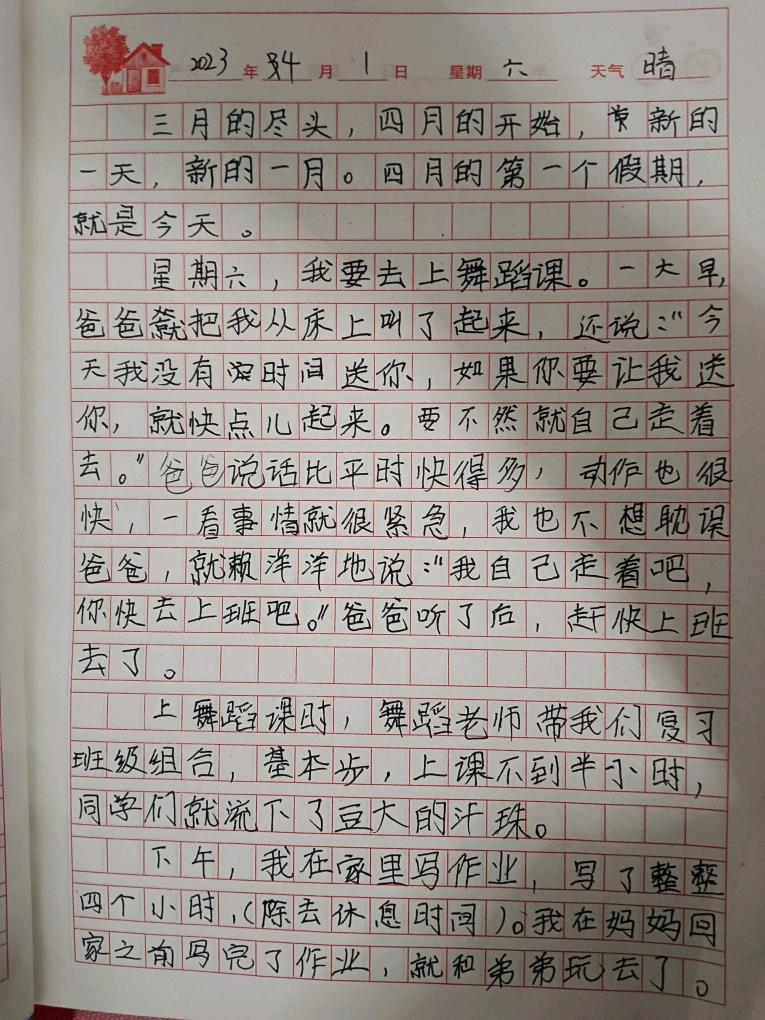 2023 年 4 月 1 日 星期 六 天气 晴
三月的尽头，四月的开始，新的
一天，新的一月。四月的第一个假期，
就是今天。
星期六，我要去上舞蹈课。一大早，
爸爸就把我从床上叫了起来，还说：“今
天我没有时间送你，如果你要让我送
你，就快点儿起来。要不然就自己走着
去。”爸爸说话比平时快得多，动作也很
快，一看事情就很紧急，我也不想耽误
爸爸，就懒洋洋地说：“我自己走着吧，
你快去上班吧。”爸爸听了后，赶快上班
去了。
上舞蹈课时，舞蹈老师带我们复习
班级组合，基本步，上课不到半小时，
同学们就流下了豆大的汗珠。
下午，我在家里写作业，写了整整
四个小时，（除去休息时间）。我在妈妈回
家之前写完了作业，就和弟弟玩去了。